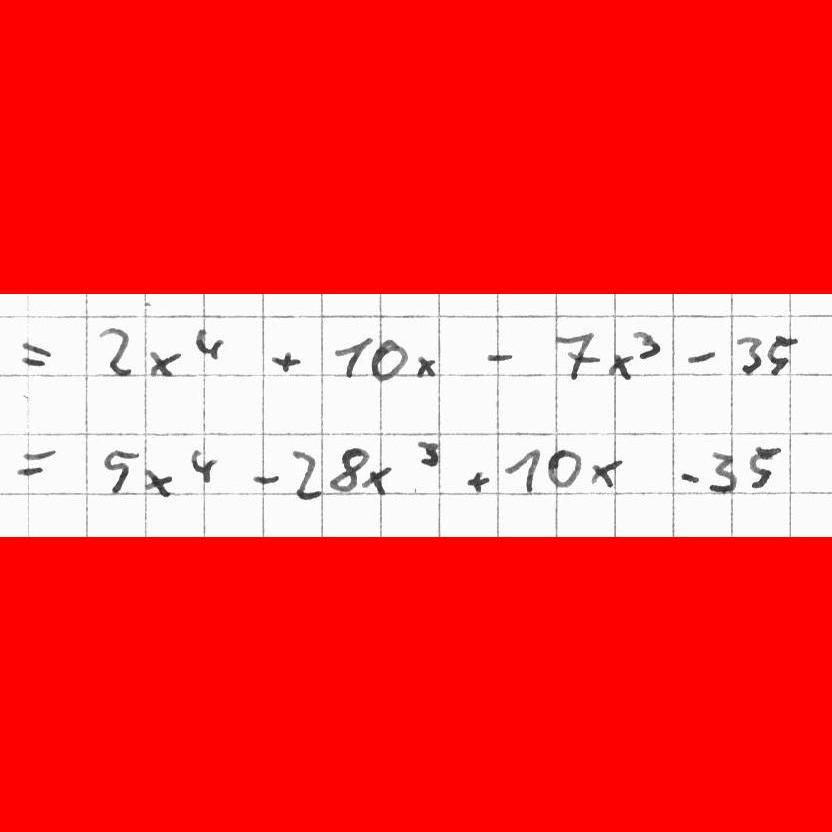 = 2x⁴ + 10x - 7x³ - 35
= 5x⁴ - 28x³ + 10x - 35